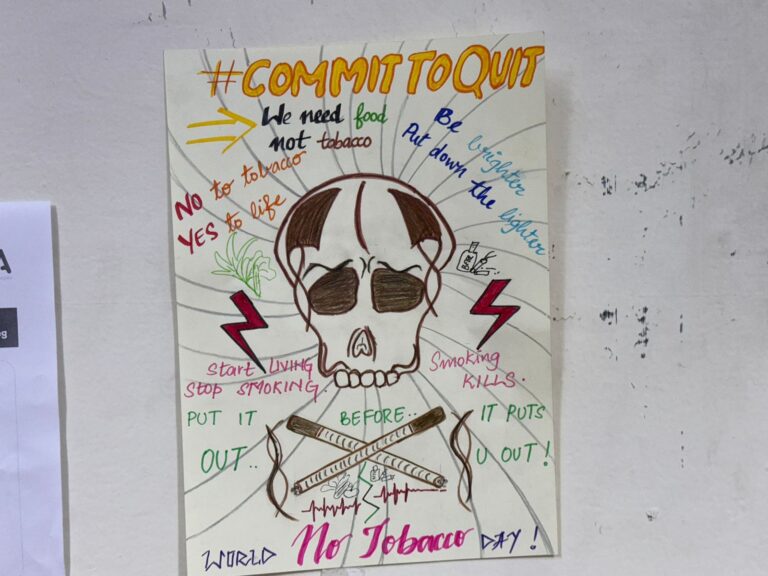 #COMMIT TO QUIT
We need food
not tobacco
NO to tobacco
YES to life
Be brighter
Put down the lighter
Start LIVING
STOP SMOKING.
Smoking
KILLS.
PUT IT
OUT..
BEFORE..
IT PUTS
U OUT!
WORLD No Tobacco DAY!
A